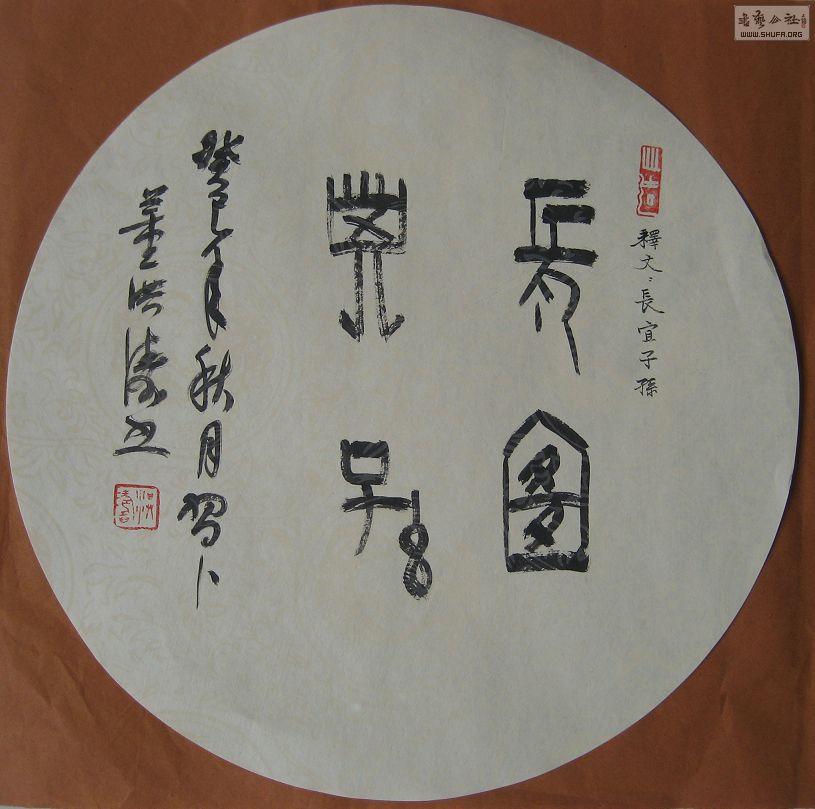 書藝公社
WWW.SHUFA.ORG
釋文：長宜子孫
長宜
子孫
癸巳年秋月習卜
董洪涛書